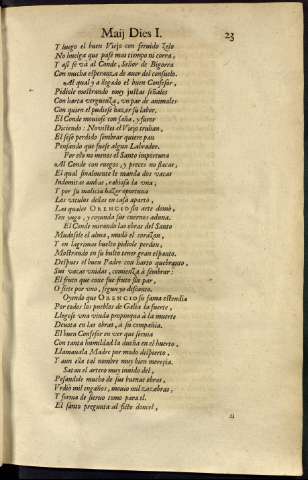 Maij Dies I. 23
Y luego el buen Viejo con feruido zelo
No huelga que passe mas tiempo ni corra,
Y assi se và al Conde, Señor de Bigorra
Con mucha esperança de auer del consuelo.
Al qual ya llegado el buen Confessor,
Pidiole mostrando muy justas señales
Con harta verguença, vn par de animales
Con quien el pudiesse hazer su labor,
El Conde mouiose con saña, y furor
Diciendo: No vistes el Viejo truhan,
El seso perdido sembrar quiere pan
Pensando que fuese algun Labrador.
Por esto no menos el Santo importuna
Al Conde con ruegos, y preces no flacas,
El qual finalmente le manda dos vacas
Indomitas ambas, rabiosa la vna;
Y por su malicia hallar oportuna
Las vnidas dellas en casa aparto,
Las quales ORENCIO sin arte domò,
Ten yugo, y coyunda sus cuernos aduna.
El Conde mirando las obras del Santo
Mudòsele el alma, mudò el coraçon,
Y en lagrimas buelto pidiole perdon,
Mostrando en su bulto tener gran espanto.
Despues el buen Padre con harto quebranto,
Sus vacas vnidas, comiença à sembrar:
El fruto que coxe fue fruto sin par,
O siete por vno, segun yo descanto.
Oyendo que ORENCIO su fama estendia
Por todos los pueblos de Galia la fuerte,
Llegose vna viuda propinqua à la muerte
Deuota en las obras, à su compañia.
El buen Confessor en ver que seruia
Con tanta humildad la dueña en el huerto,
Llamauala Madre por modo despierto,
Y aun ella tal nombre muy bien merecia.
Satan el artero muy inuido del,
Pesandole mucho de sus buenas obras,
Vrdiò mil engaños, mouio mil zozobras,
Y forma de sieruo tomo para el.
El santo pregunta al ficto donzel,